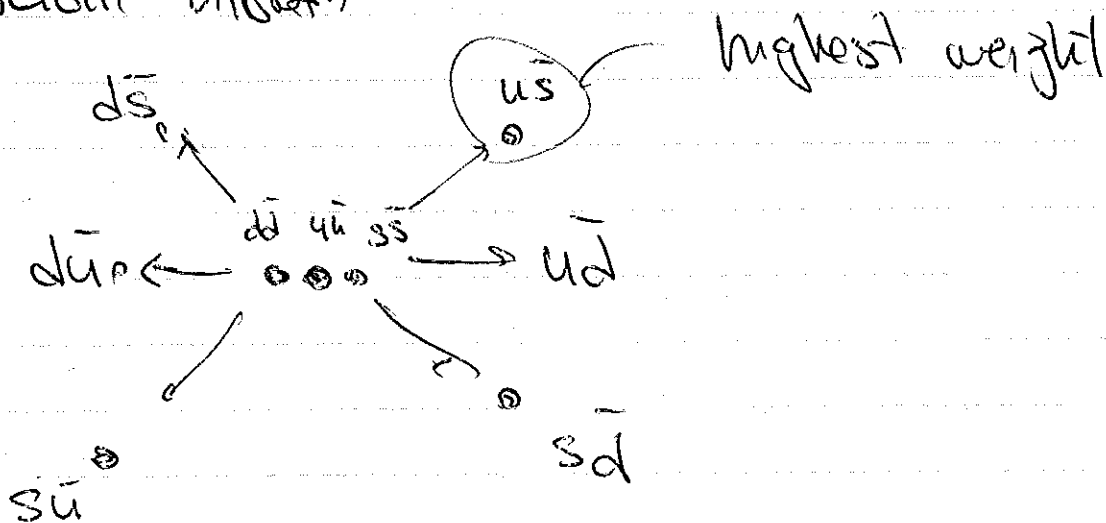 highest weight
us̄
ds̄
dd̄ uū ss̄
dū ud̄
sd̄
sū